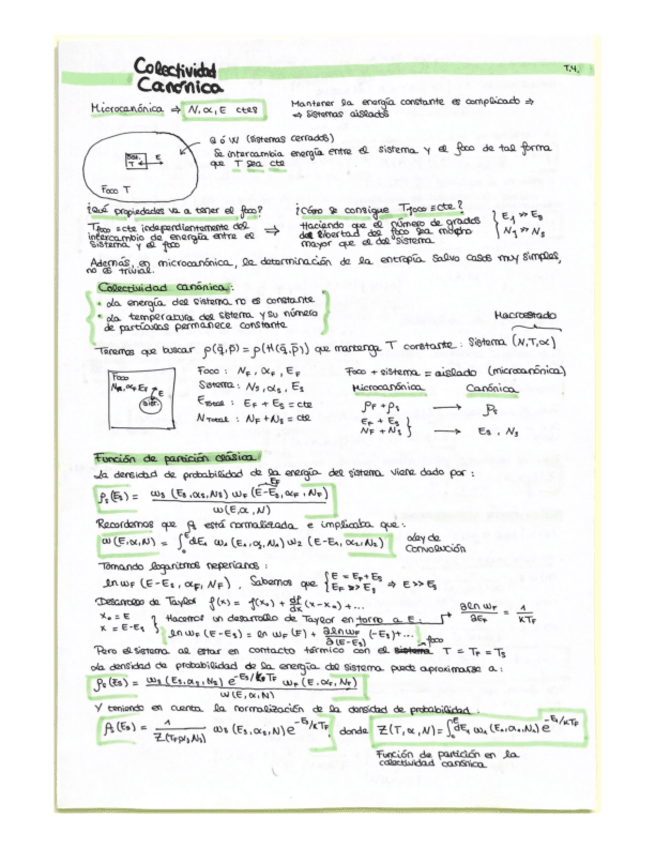 Colectividad
Canónica
T.4.
Microcanónica ⇒ N, α, E ctes
Mantener la energía constante es complicado ⇒
⇒ sistemas aislados
Q ó W (sistemas cerrados)
Se intercambia energía entre el sistema y el foco de tal forma
que T sea cte
Sist. E
T
Foco T
¿Qué propiedades va a tener el foco?
T_Foco = cte independientemente del
intercambio de energía entre el
sistema y el foco
⇒
¿Cómo se consigue T_Foco = cte?
Haciendo que el número de grados
de libertad del foco sea mucho
mayor que el del sistema
E₁ >> E_S
N₁ >> N_S
Además, en microcanónica, la determinación de la entropía salvo casos muy simples,
no es trivial.
Colectividad canónica:
• La energía del sistema no es constante
• La temperatura del sistema y su número
de partículas permanece constante
Macroestado
Tenemos que buscar ρ(q̄,p̄) = ρ(H(q̄,p̄)) que mantenga T constante: Sistema (N,T,α)
Foco
N_F, α_F E_F
E
Sist.
Foco: N_F, α_F, E_F
Sistema: N_S, α_S, E_S
E_Total: E_F + E_S = cte
N_Total: N_F + N_S = cte
Foco + sistema = aislado (microcanónica)
Microcanónica Canónica
ρ_F + ρ_S → ρ_S
E_F + E_S
N_F + N_S } → E_S, N_S
Función de partición clásica
La densidad de probabilidad de la energía del sistema viene dado por:
E_F
ρ_S(E_S) = ω_S(E_S, α_S, N_S) ω_F(E-E_S, α_F, N_F) / ω(E, α, N)
Recordemos que ρ_S está normalizada e implicaba que:
ω(E,α,N) = ∫₀ᴱ dE₁ ω₁(E₁, α₁, N₁) ω₂(E-E₁, α₂, N₂)
Ley de
Convolución
Tomando logaritmos neperianos:
ln ω_F(E-E_S, α_F, N_F). Sabemos que { E = E_F + E_S
E_F >> E_S ⇒ E >> E_S
Desarrollo de Taylor f(x) = f(x₀) + df/dx (x-x₀) + ...
x₀ = E
x = E-E_S } Hacemos un desarrollo de Taylor en torno a E: → ∂ln ω_F/∂E_F = 1/KT_F
ln ω_F(E-E_S) = ln ω_F(E) + ∂ln ω_F/∂(E-E_S) (-E_S) + ...
foco
Pero el sistema al estar en contacto térmico con el sistema T = T_F = T_S
La densidad de probabilidad de la energía del sistema puede aproximarse a:
ρ_S(E_S) = ω_S(E_S, α_S, N_S) e^(-E_S/KT_F) ω_F(E, α_F, N_F) / ω(E, α, N)
Y teniendo en cuenta la normalización de la densidad de probabilidad:
ρ_S(E_S) = 1/Z(T_F, α_S, N_S) ω_S(E_S, α_S, N_S) e^(-E_S/KT_F), donde Z(T,α,N) = ∫₀ᴱ dE₁ ω₁(E₁, α₁, N₁) e^(-E_S/KT_F)
Función de partición en la
colectividad canónica